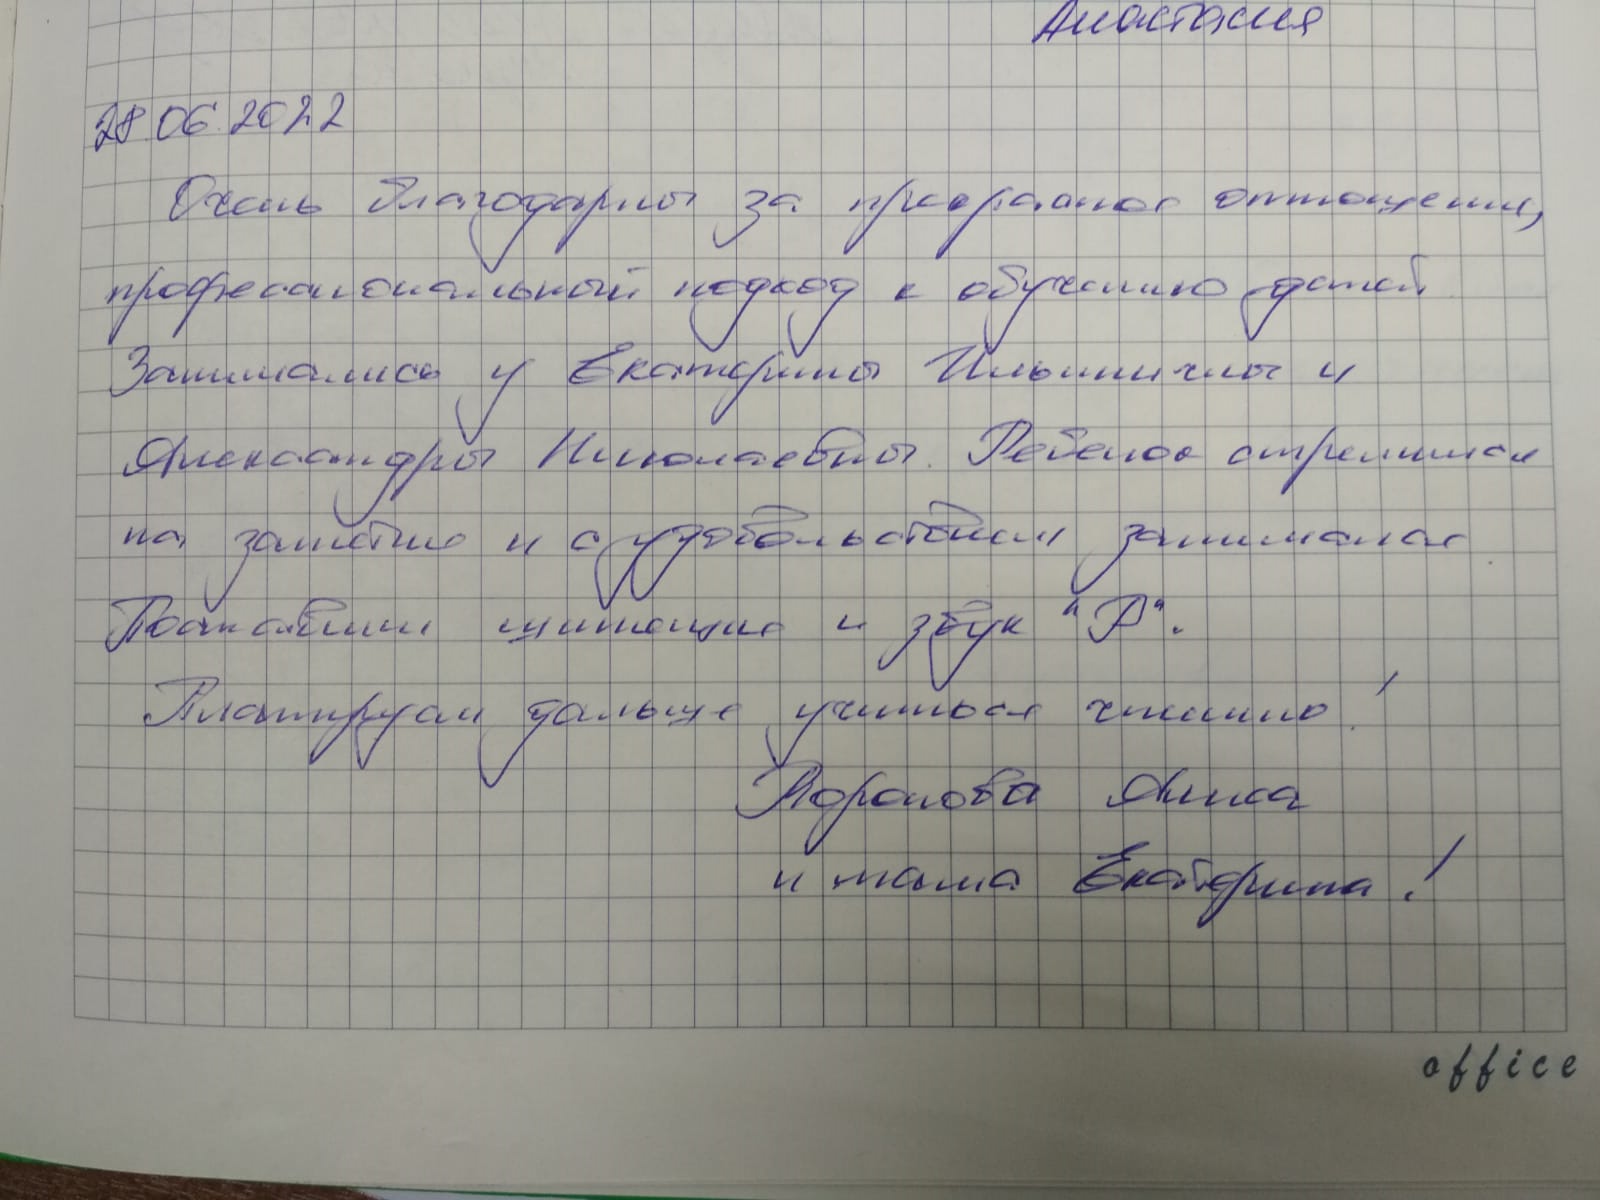 Анастасия
28.06.2022
Очень благодарны за прекрасное отношение,
профессиональный подход к обучению детей
Занимались у Екатерины Ильиничны и
Александры Николаевны. Ребенок стремился
на занятие и с удовольствием занимался.
Поставили шипящие и звук "Р".
Планируем дальше учиться чтению!
Алиса
и мама Екатерина!
office